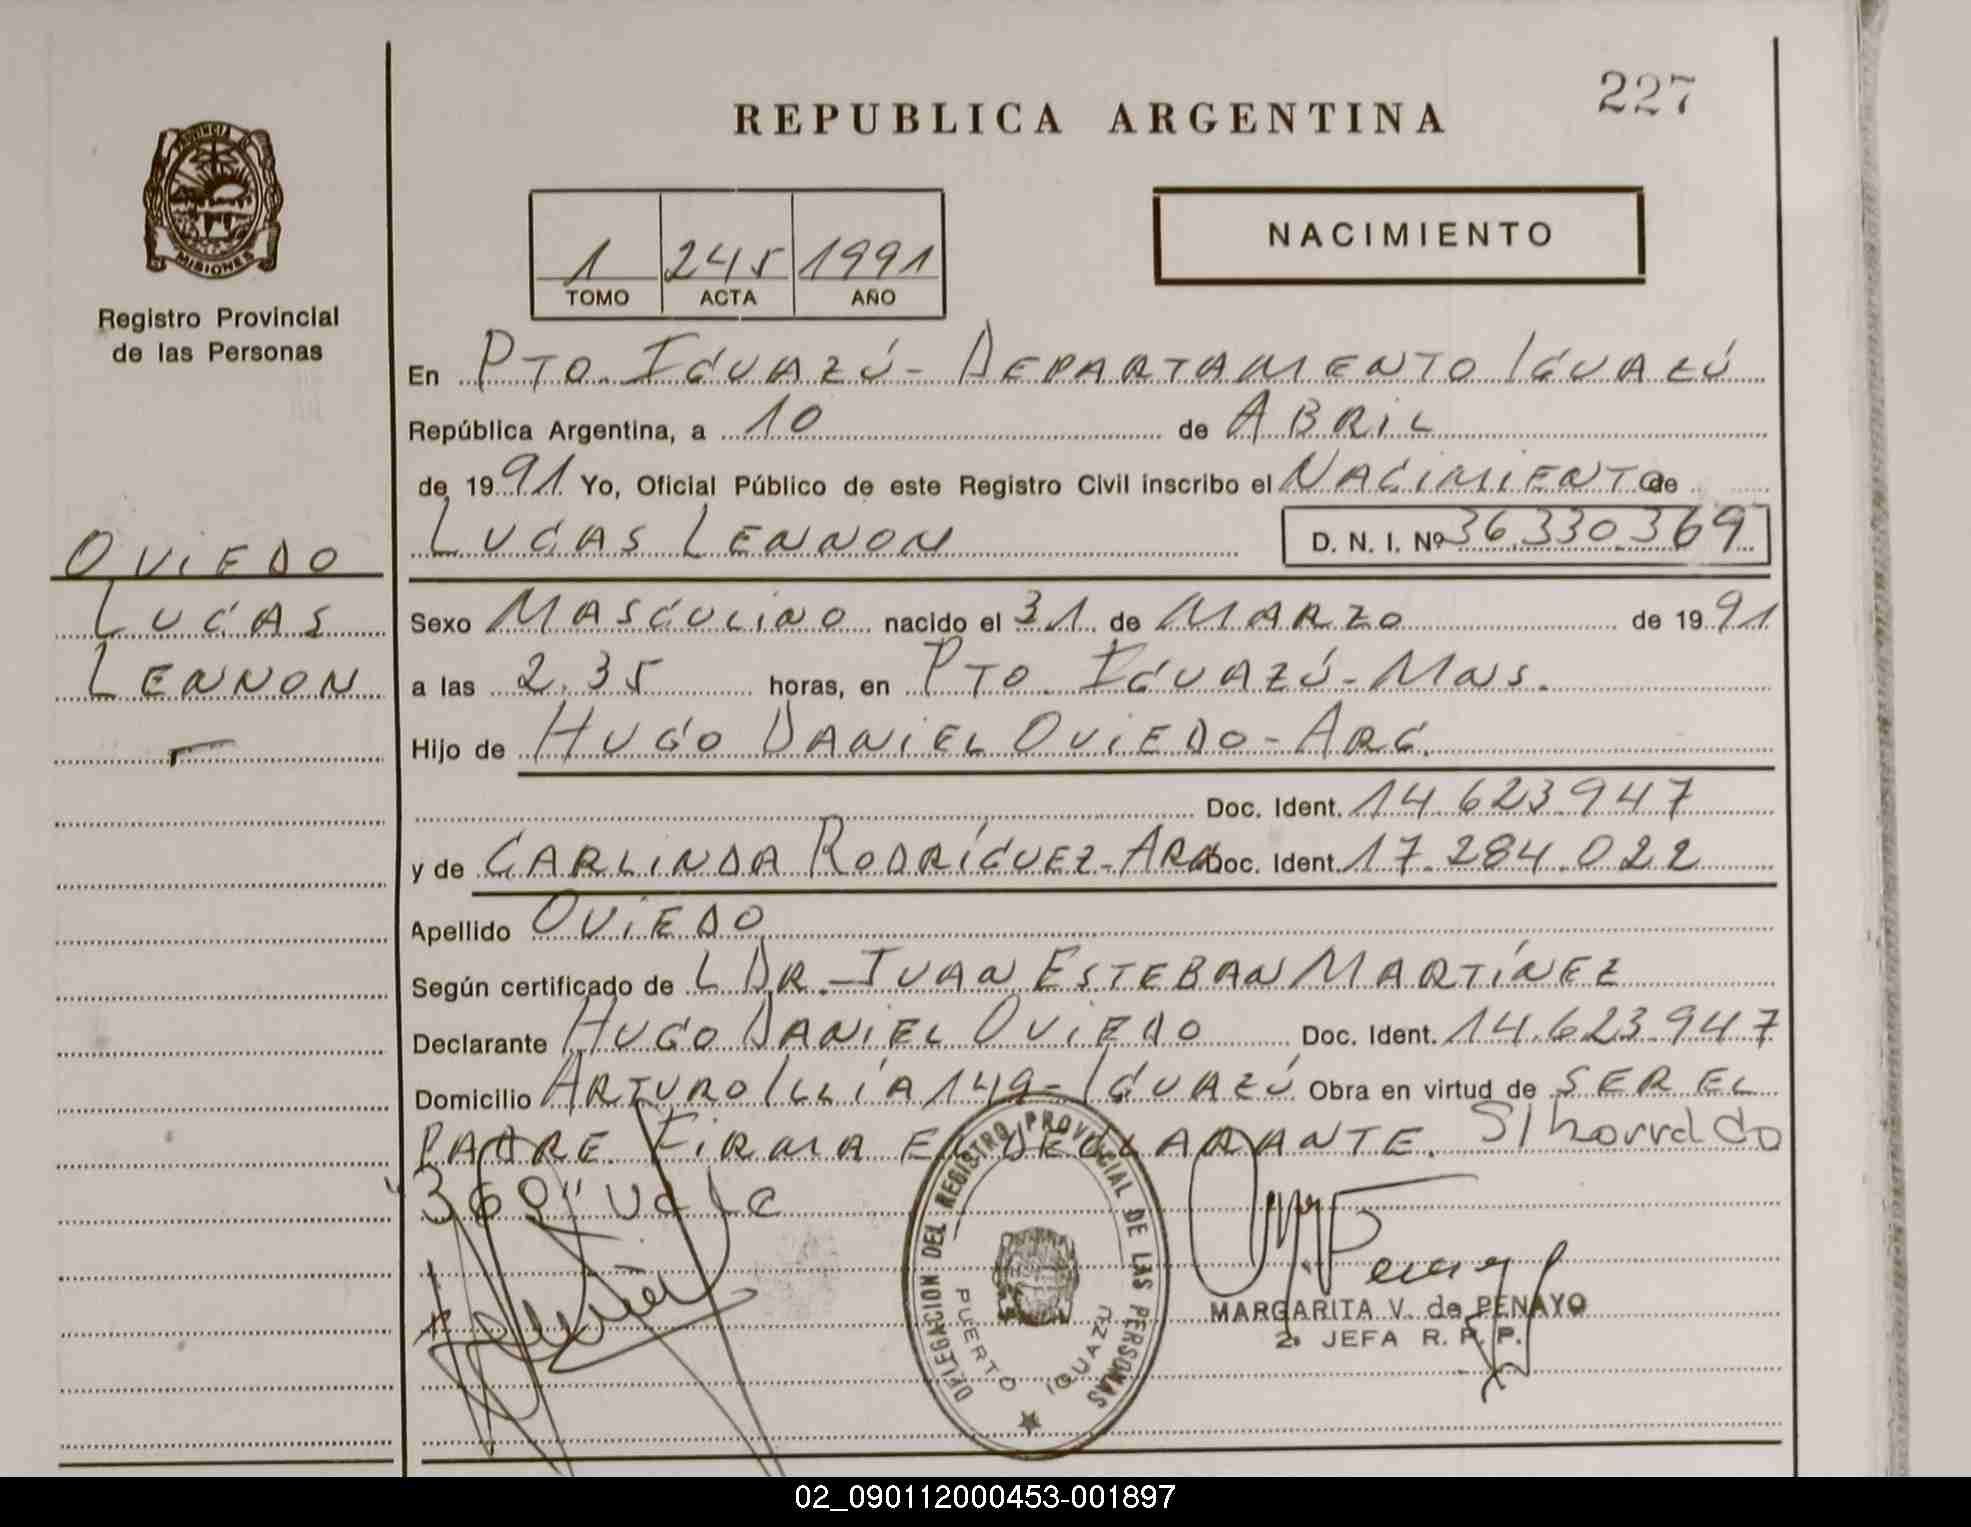 227
REPUBLICA ARGENTINA
PROVINCIA DE
MISIONES
Registro Provincial
de las Personas
NACIMIENTO
1 245 1991
TOMO ACTA AÑO
En PTO. IGUAZÚ - DEPARTAMENTO IGUAZÚ
República Argentina, a 10 de ABRIL
de 1991 Yo, Oficial Público de este Registro Civil inscribo el NACIMIENTO de
LUCAS LENNON D. N. I. Nº 36.330.369
OVIEDO
LUCAS
LENNON
Sexo MASCULINO nacido el 31 de MARZO de 1991
a las 2.35 horas, en PTO. IGUAZÚ - MNS.
Hijo de HUGO DANIEL OVIEDO - ARG.
Doc. Ident. 14.623.947
y de CARLINDA RODRÍGUEZ - ARG Doc. Ident. 17.284.022
Apellido OVIEDO
Según certificado de L DR. JUAN ESTEBAN MARTÍNEZ
Declarante HUGO DANIEL OVIEDO Doc. Ident. 14.623.947
Domicilio ARTURO ILLÍA 149 - IGUAZÚ Obra en virtud de SER EL
PADRE. FIRMA EL DECLARANTE. S/borrado
"369" vale
DELEGACION DEL REGISTRO PROVINCIAL DE LAS PERSONAS
PUERTO IGUAZU
MARGARITA V. de PENAYO
2ª JEFA R. P. P.
02_090112000453-001897